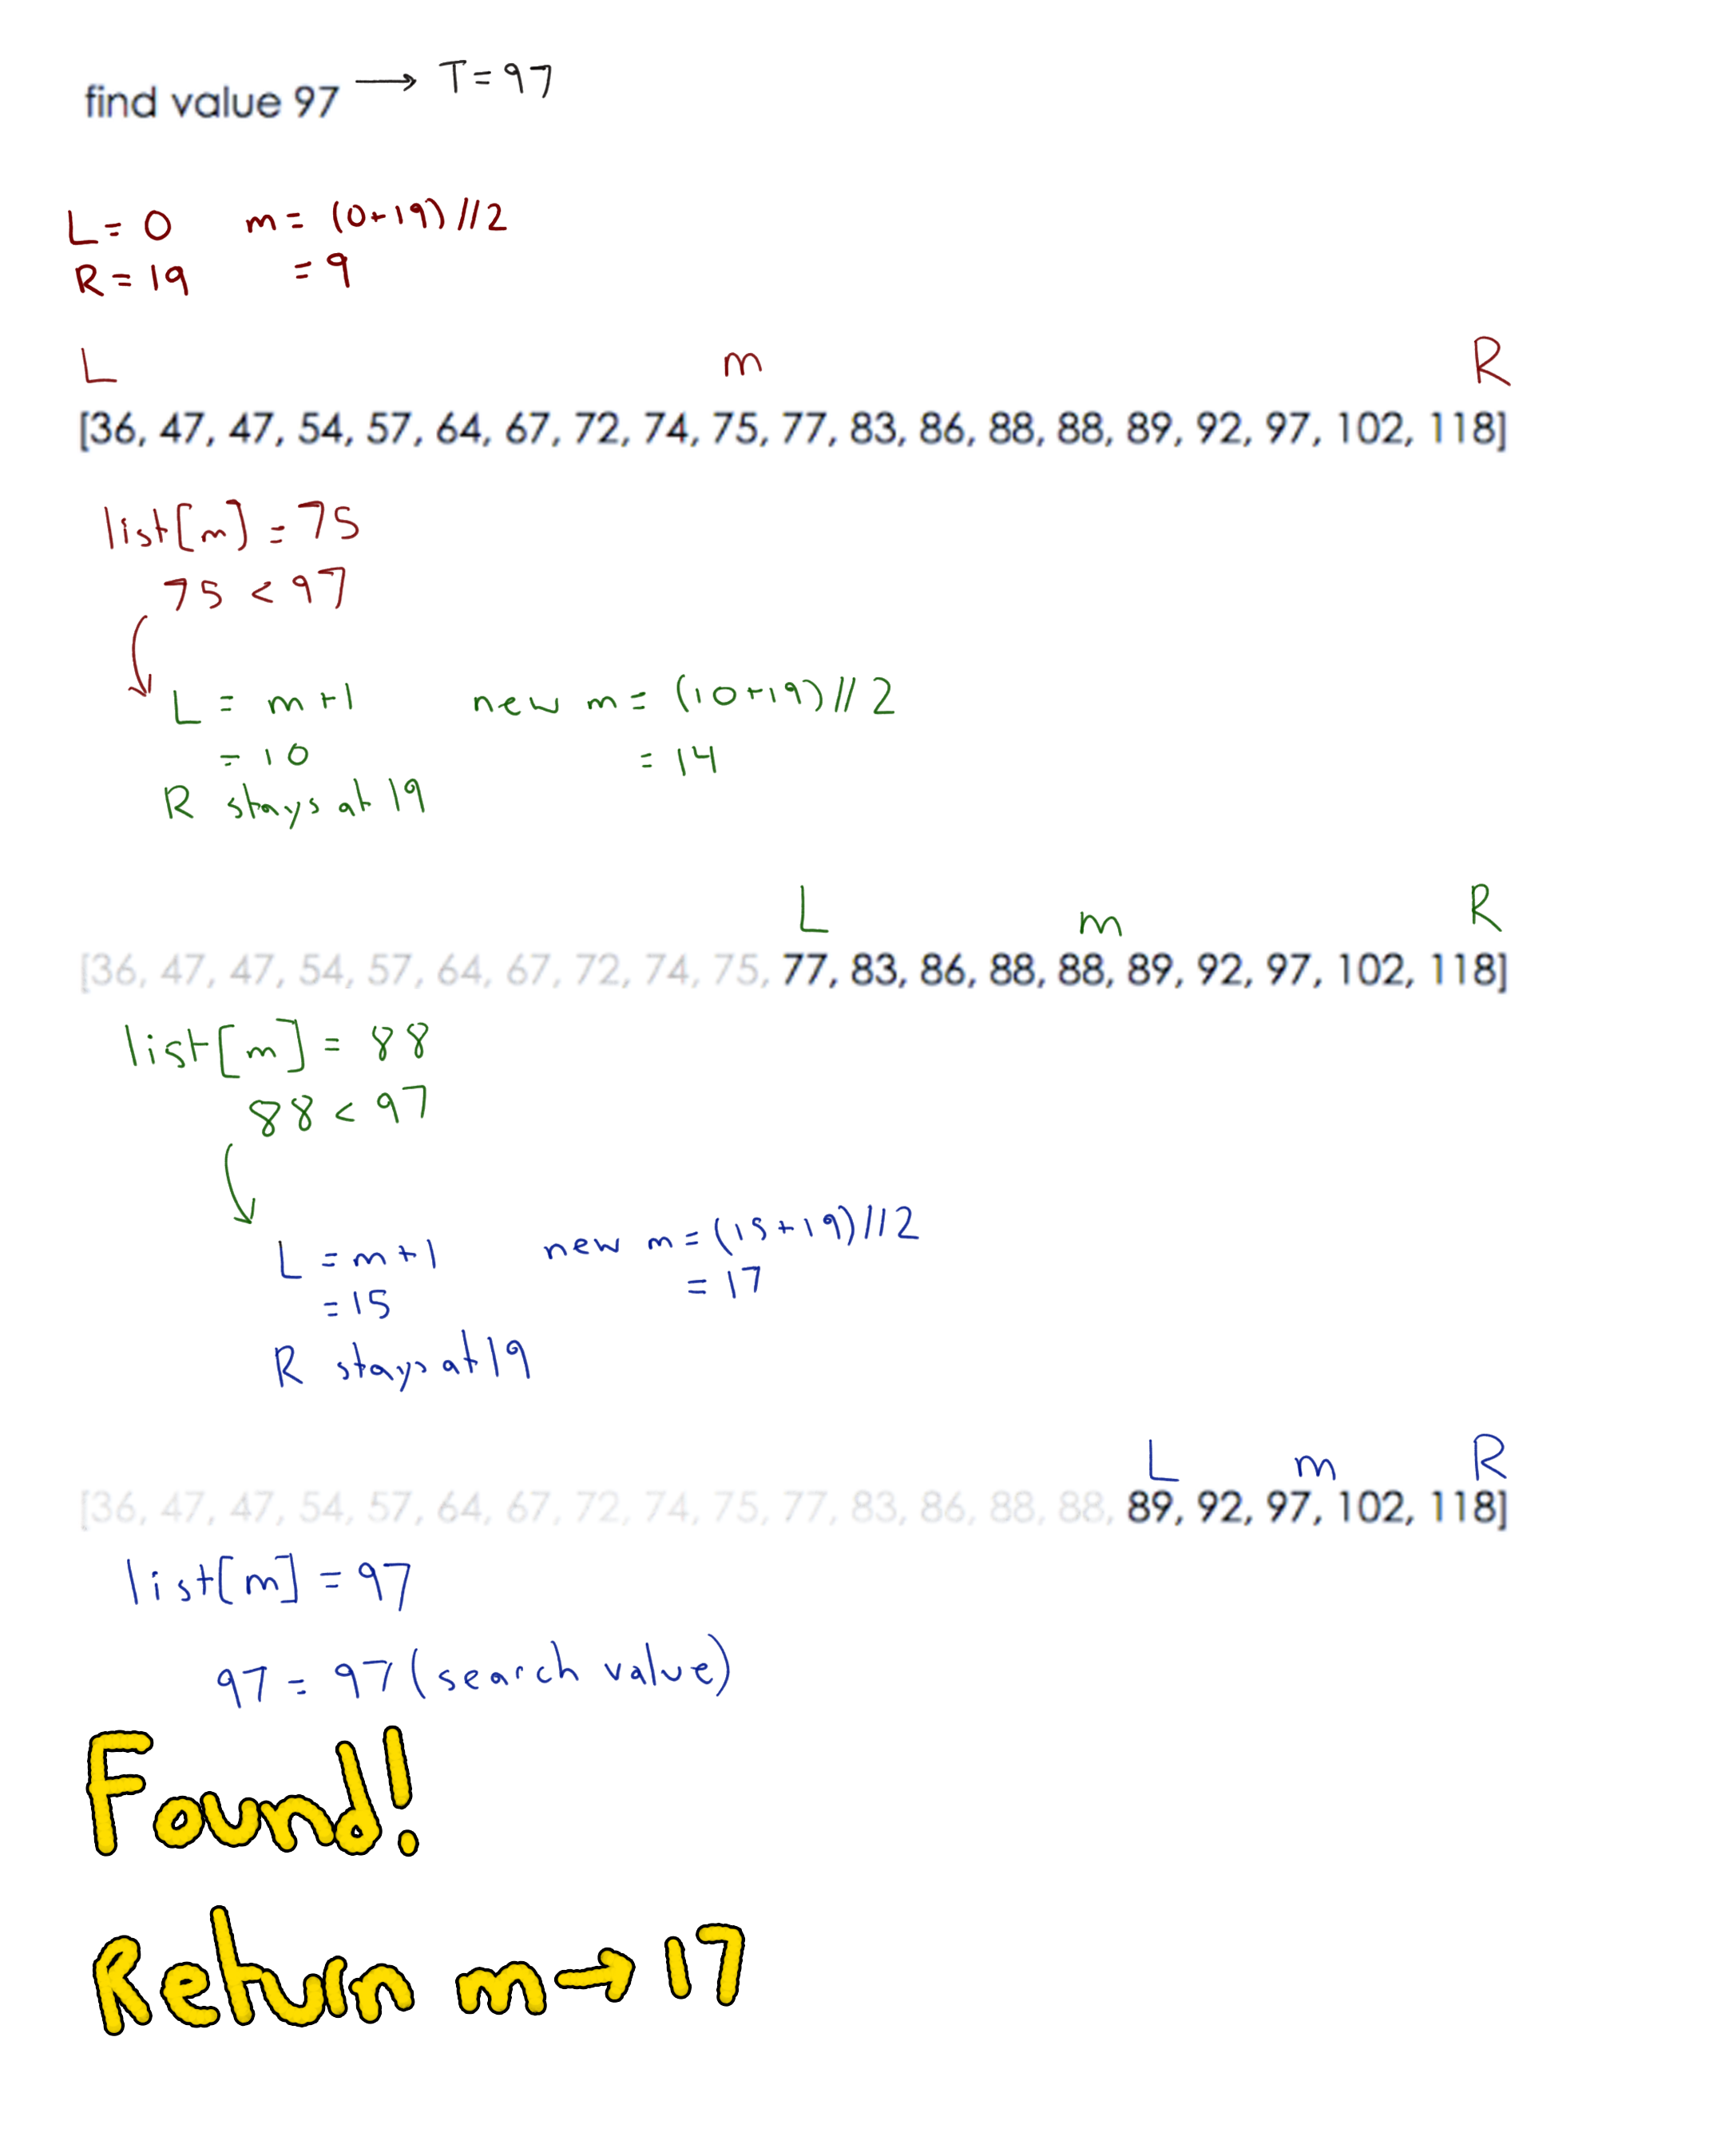 find value 97 → T=97
L= 0 m= (0+19)//2
R=19 =9
L m R
[36, 47, 47, 54, 57, 64, 67, 72, 74, 75, 77, 83, 86, 88, 88, 89, 92, 97, 102, 118]
list[m]=75
75 < 97
L = m+1 new m= (10+19)//2
= 10 = 14
R stays at 19
L m R
[36, 47, 47, 54, 57, 64, 67, 72, 74, 75, 77, 83, 86, 88, 88, 89, 92, 97, 102, 118]
list[m] = 88
88 < 97
L = m+1 new m = (15+19)//2
= 15 = 17
R stays at 19
L m R
[36, 47, 47, 54, 57, 64, 67, 72, 74, 75, 77, 83, 86, 88, 88, 89, 92, 97, 102, 118]
list[m] = 97
97 = 97 (search value)
Found!
Return m→17